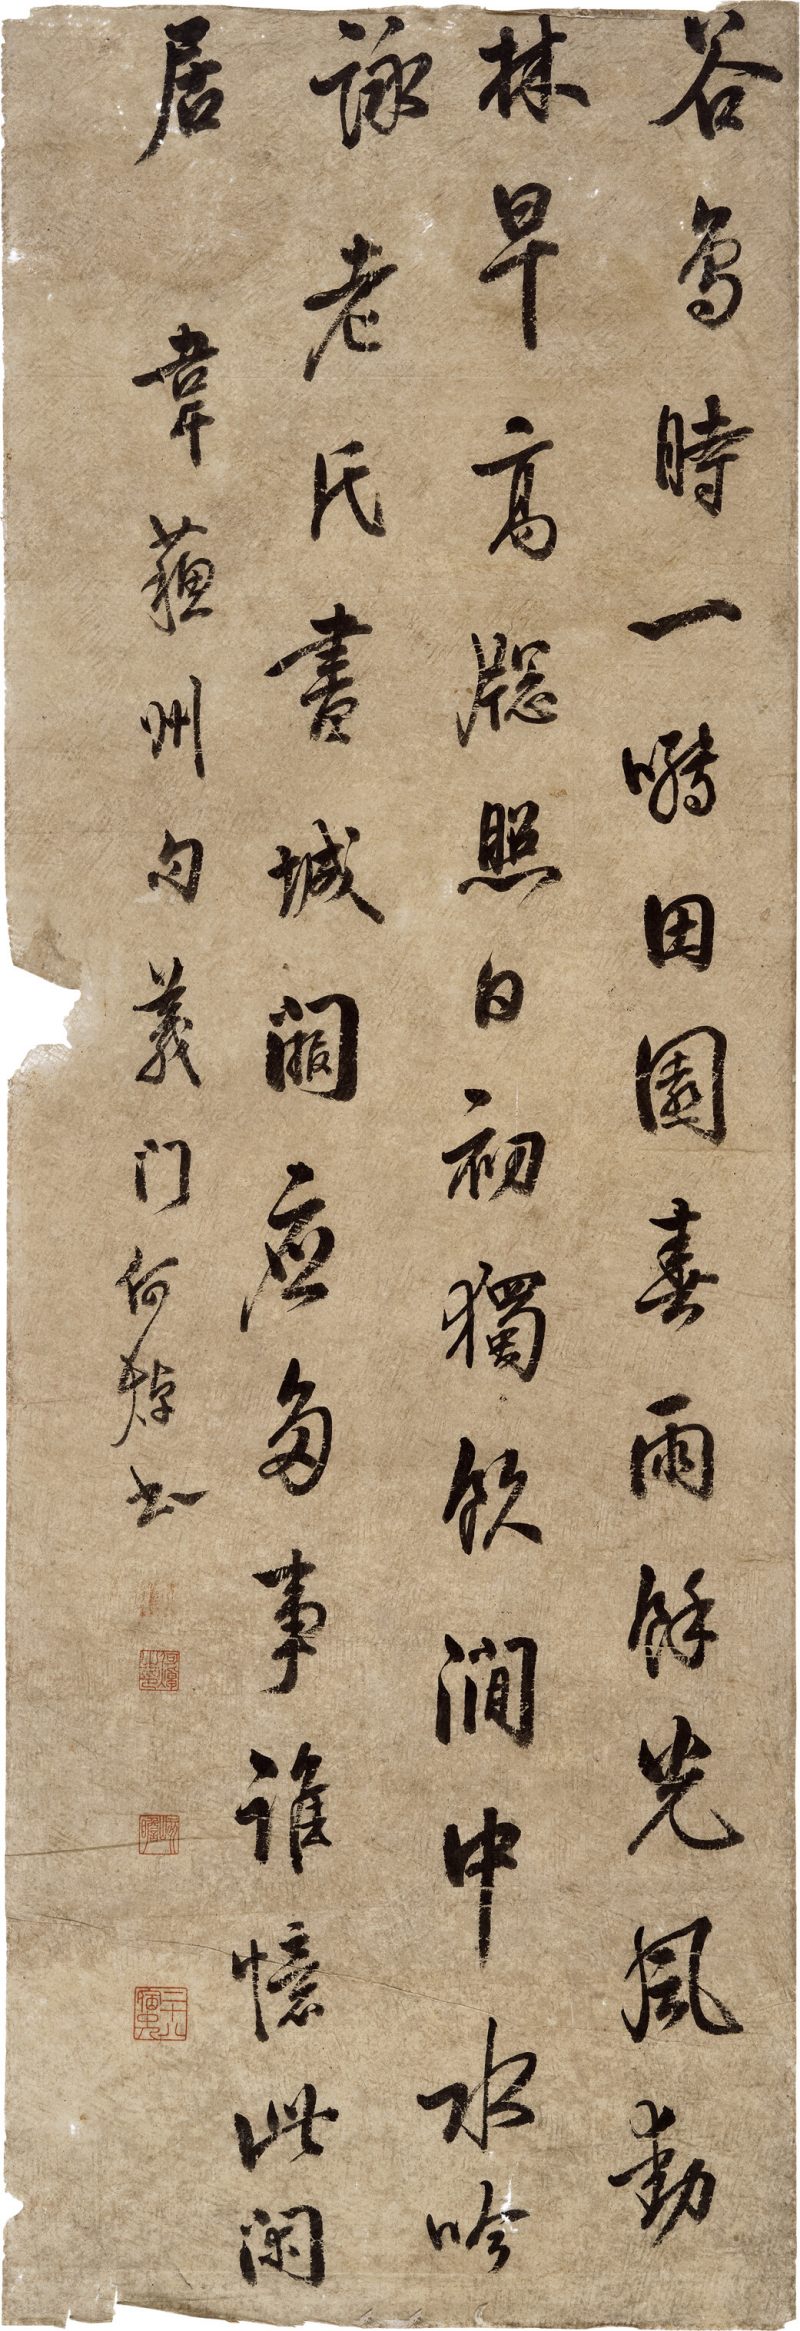 谷鳥時一囀田園春雨餘光風動
林早高牕照日初獨飲澗中水吟
詠老氏書城闕應多事誰憶此閑
居
韋蘇州句義門何焯書